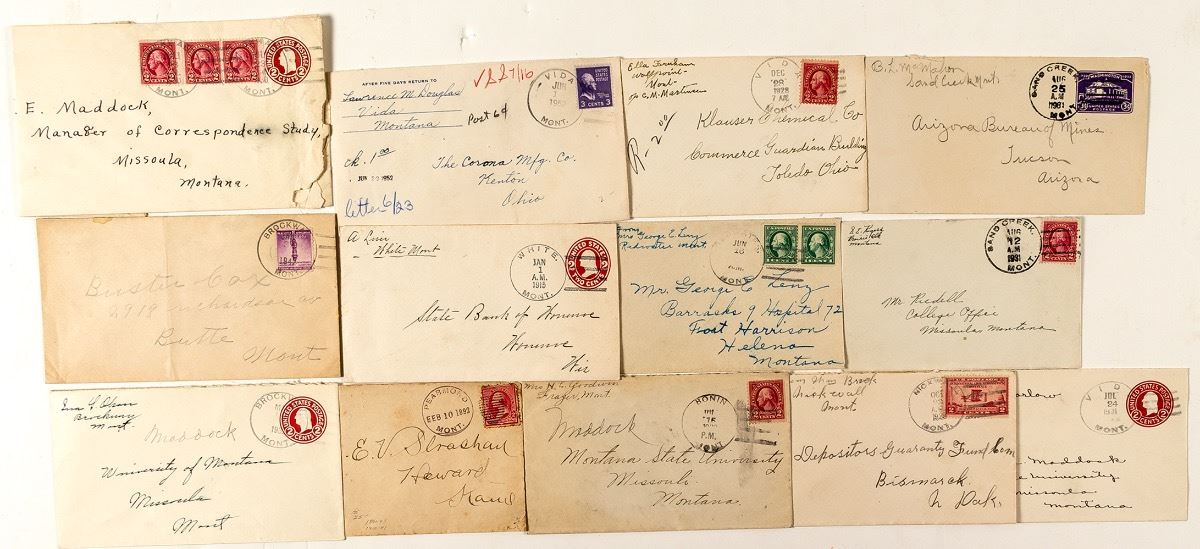 UNITED STATES POSTAGE
2 CENTS 2
MONT.
E. Maddock,
Manager of Correspondence Study,
Missoula,
Montana.
AFTER FIVE DAYS RETURN TO
Lawrence M. Douglas
Vida
Montana
Post 6¢
VIDA
JUN
MONT.
3 CENTS 3
ck. 1.00
JUN 23 1952
letter 6/23
The Corona Mfg. Co.
Kenton
Ohio
Ella Farnham
Wolfpoint
Mont
℅ C.M.
R-2
VIDA
DEC
28
1928
7 AM
MONT.
Klauser Chemical Co
Commerce Guardian Building
Toledo Ohio
B. L. McMahon
Sand Creek Mont.
SAND CREEK
AUG
25
A.M
1931
MONT.
Arizona Bureau of Mines
Tucson
Arizona
BROCKW
Buster Cox
2918 richardson av
Butte
Mont
A Linn
White Mont
WHITE.
JAN
1
A.M.
1915
MONT.
UNITED STATES
TWO CENTS
State Bank of
Wis
Mrs George C. Lenz
Redwater Mont.
JUN
16
MONT
Mr. George C Lenz
Barracks 9 Hospital 72
Foat Harrison
Helena
Montana
Montana
SAND CREEK.
AUG
12
A.M
1931
MONT.
Mr Riedell
College Office
Missoula Montana
Brockway
Mont.
BROCKW
UNITED STATES POSTAGE
2 CENTS 2
Maddock
University of Montana
Missoula
Mont
PEARMOND
FEB 10 1892
MONT.
E. V. Strachan
Howard
Mrs H. C. Goodwin
Frazer, Mont.
RONIN
15
P.M.
MONT
Maddock
Montana State University
Missoula
Montana.
Brook
Mont.
Depositors Guaranty Fund Com
Bismarck
N Dak.
VID
JUL
24
1931
MONT.
UNITED STATES POSTAGE
2 CENTS 2
Maddock
University
missoula
montana